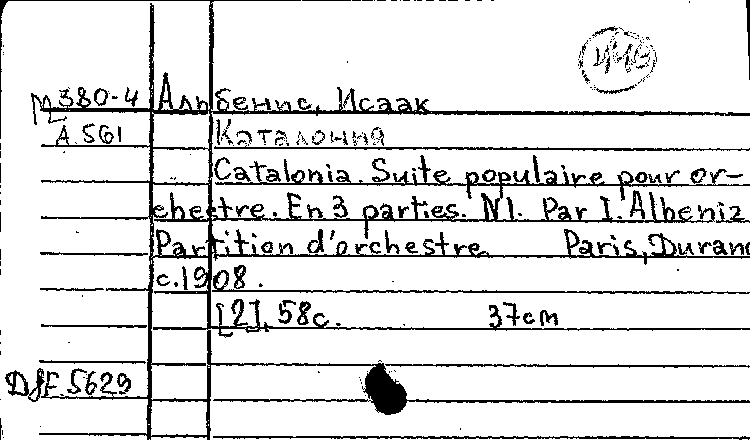 М380-4 Альбенис, Исаак
А 561 Каталония
Catalonia. Suite populaire pour or-
chestre. En 3 parties. N1. Par I. Albeniz
Partition d'orchestre Paris, Durand
c.1908.
[2], 58с. 37cm
5629